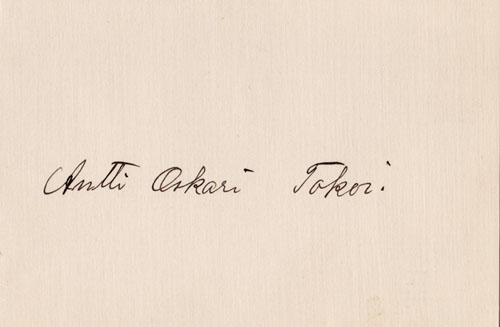 Antti Oskari Tokoi.